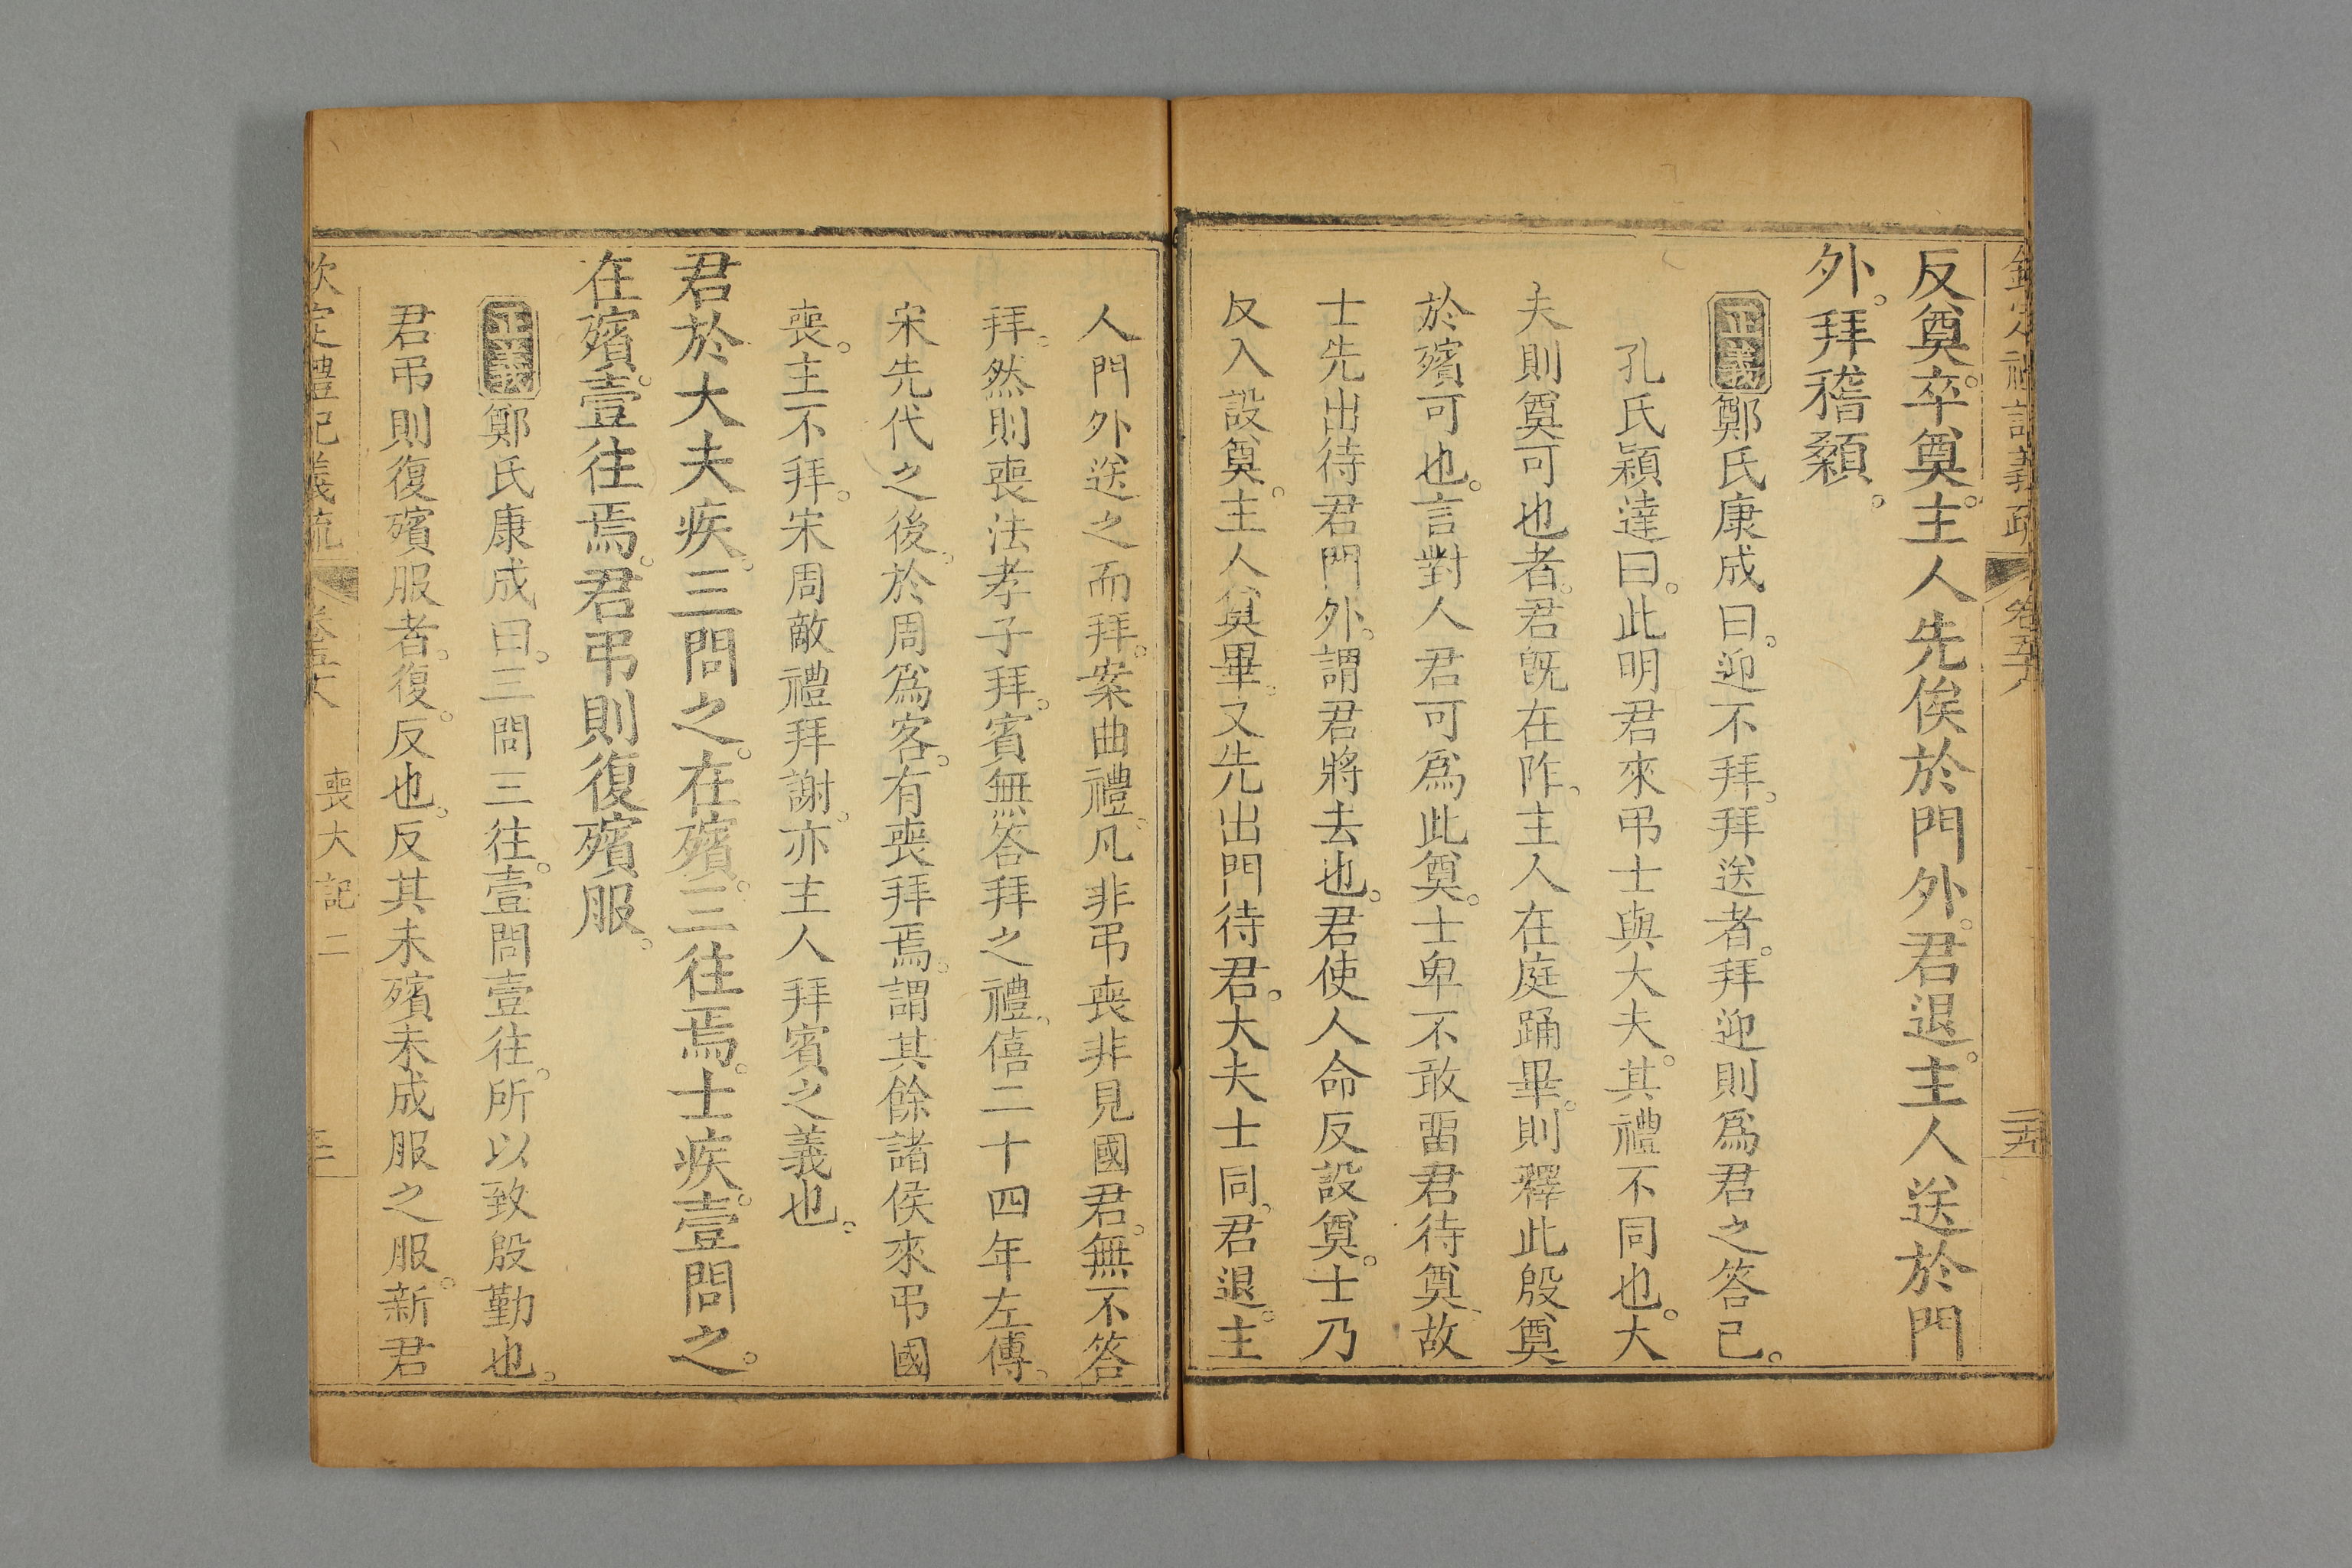 欽定禮記義疏 卷五十八 二十九
反奠。卒奠。主人先俟於門外。君退。主人送於門
外。拜稽顙。
正義鄭氏康成曰。迎不拜。拜送者。拜迎則爲君之答己。
孔氏穎達曰。此明君來弔士與大夫。其禮不同也。大
夫則奠可也者。君旣在阼。主人在庭踊畢。則釋此殷奠
於殯可也。言對人君可爲此奠。士卑不敢畱君待奠。故
士先出待君門外。謂君將去也。君使人命反設奠。士乃
反入設奠。主人奠畢。又先出門待君。大夫士同。君退。主
人門外送之而拜。案曲禮。凡非弔喪非見國君。無不答
拜。然則喪法孝子拜。賓無答拜之禮。僖二十四年左傳。
宋先代之後。於周爲客。有喪拜焉。謂其餘諸侯來弔國
喪。主不拜。宋周敵禮拜謝。亦主人拜賓之義也。
君於大夫疾。三問之。在殯。三往焉。士疾。壹問之。
在殯。壹往焉。君弔則復殯服。
正義鄭氏康成曰。三問三往。壹問壹往。所以致殷勤也。
君弔則復殯服者。復。反也。反其未殯未成服之服。新君
欽定禮記義疏 卷五十八 喪大記二